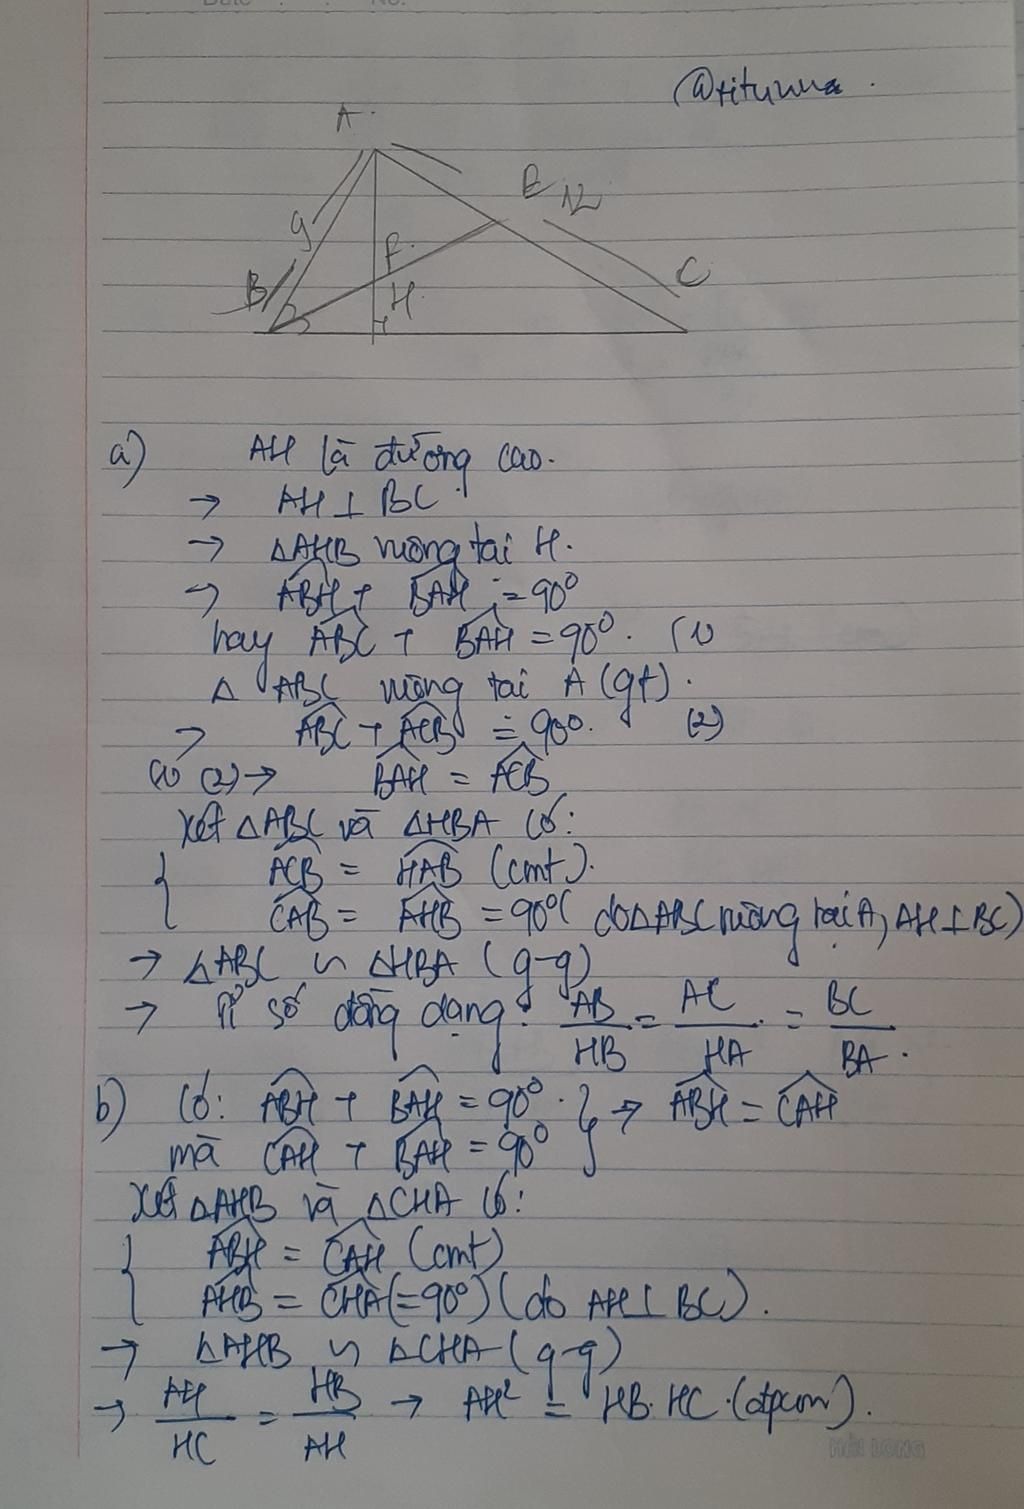 @titunna.
A
E 12
9
F
B
H
C
a) AH là đường cao.
→ AH ⊥ BC
→ △AHB vuông tại H.
→ \widehat{ABH} + \widehat{BAH} = 90°
hay \widehat{ABC} + \widehat{BAH} = 90°. (1)
△ ABC vuông tại A (gt).
→ \widehat{ABC} + \widehat{ACB} = 90°. (2)
(1) (2) → \widehat{BAH} = \widehat{ACB}
Xét △ABC và △HBA có:
{ \widehat{ACB} = \widehat{HAB} (cmt).
\widehat{CAB} = \widehat{AHB} = 90° (do △ABC vuông tại A, AH ⊥ BC)
→ △ABC ∽ △HBA (g-g)
→ Tỉ số đồng dạng: AB/HB = AC/HA = BC/BA.
b) Có: \widehat{ABH} + \widehat{BAH} = 90°. } → \widehat{ABH} = \widehat{CAH}
mà \widehat{CAH} + \widehat{BAH} = 90°
Xét △AHB và △CHA có:
{ \widehat{ABH} = \widehat{CAH} (cmt)
\widehat{AHB} = \widehat{CHA} (=90°) (do AH ⊥ BC).
→ △AHB ∽ △CHA (g-g)
→ AH/HC = HB/AH → AH² = HB.HC.(đpcm).
HẢI LONG